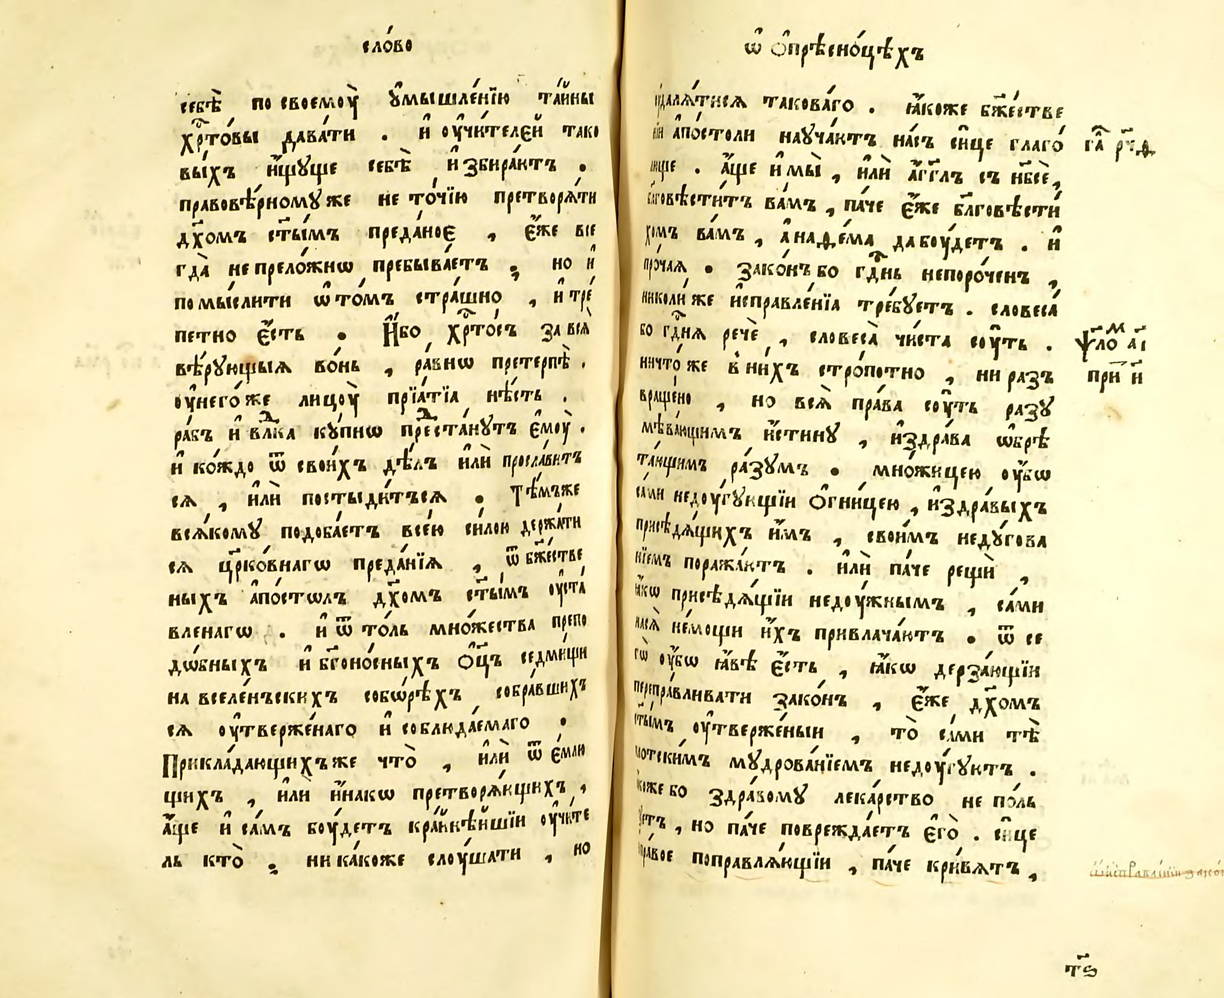 сло́во
себѣ̀ по своемоу̀ ᲂу҆мышле́нїю та́йны
хрⷭ҇то́вы дава́ти . и҆ ᲂу҆чи́телей тако
вы́хъ и҆́щуще себѣ̀ и҆збира́ютъ .
правовѣ́рному же не то́чїю претворѧ́ти
дх҃омъ ст҃ы́мъ преда́ное , є҆́же все
гда̀ непрело́жнѡ пребыва́етъ , но и҆
помы́слити ѡ҆ то́мъ стра́шно , и҆ тре́
петно є҆́сть . И҆́бо хрⷭ҇то́съ за всѧ̀
вѣ́рующыѧ во́нь , ра́внѡ претерпѣ̀ .
ᲂу҆ него́же лицоу̀ прїѧ́тїѧ нѣ́сть .
ра́бъ и҆ влⷣка ку́пнѡ преста́нутъ є҆моу̀ .
и҆ ко́ждо ѿ свои́хъ дѣ́лъ и҆лѝ просла́витъ
сѧ , и҆лѝ постыди́тъсѧ . Тѣ́мъже
всѧ́кому подоба́етъ все́ю си́лою держа́ти
сѧ цр҃ко́внагѡ преда́нїѧ , ѿ бж҃е́стве
ныхъ а҆по́столъ дх҃омъ ст҃ы́мъ ᲂу҆ста́
вленагѡ . и҆ ѿ то́ль мно́жества препо
до́бныхъ и҆ бг҃оно́сныхъ ѻ҆ц҃ъ седми́щи
на вселе́нъскихъ собо́рѣхъ собра́вшихъ
сѧ ᲂу҆твержє́наго и҆ соблюда́емаго .
Прикла́дающихъ же что̀ , и҆лѝ ѿе́млю
щихъ , и҆лѝ и҆на́кѡ претворѧ́ющихъ ,
а҆́ще и҆ са́мъ боу́детъ кра́йнѣйшїи ᲂу҆чи́те
ль кто̀ , ника́коже слоу́шати , но
ѡ҆ ѻ҆прѣсно́цѣхъ
ᲂудалѧ́тисѧ такова́го . ꙗ҆́коже бж҃е́стве
нїи а҆по́столи науча́ютъ на́съ си́це глаго́
люще . а҆́ще и҆ мы̀ , и҆лѝ а҆́гг҃лъ съ нб҃сѐ ,
благовѣсти́тъ ва́мъ , па́че є҆́же бл҃говѣсти́
хомъ ва́мъ , а҆на́ѳема да боу́детъ . и҆
про́чаѧ . зако́нъ бо гдⷭ҇нь непоро́ченъ ,
николи́же и҆справле́нїѧ тре́буетъ . словеса́
бо гдⷭ҇нѧ речѐ , словеса̀ чи́ста соу́ть .
ничто́же в ни́хъ стро́потно , ни раз
враще́но , но всѧ̀ пра́ва соу́ть разу
мѣва́ющимъ и҆́стину , и҆ здра́ва ѡ҆брѣ
та́ющимъ ра́зумъ . мно́жицею ᲂу҆́бѡ
са́ми недоу́гующїи ѻ҆гни́цею , и҆ здра́выхъ
присѣдѧ́щихъ и҆́мъ , свои́мъ неду́гова
нїемъ поража́ютъ . и҆лѝ па́че рещѝ ,
ꙗ҆́кѡ присѣдѧ́щїи недоу́жнымъ , са́ми
насѧ̀ не́мощи и҆́хъ привлача́ютъ . ѿ се
гѡ̀ ᲂу҆́бѡ ꙗ҆́вѣ є҆́сть , ꙗ҆́кѡ дерза́ющїи
перепра́вливати зако́нъ , є҆́же дх҃омъ
ст҃ы́мъ ᲂу҆тверже́ныи , то̀ са́ми тѣ
лотски́мъ мудрова́нїемъ недоу́гуютъ .
ꙗ҆́коже бо здра́вому лека́рство не по́ль
зуетъ , но па́че поврежда́етъ є҆го̀ . си́це
пра́вое поправлѧ́ющїи , па́че кривѧ́тъ ,
ѱало́м а҃і
при и҃
т҃ѕ